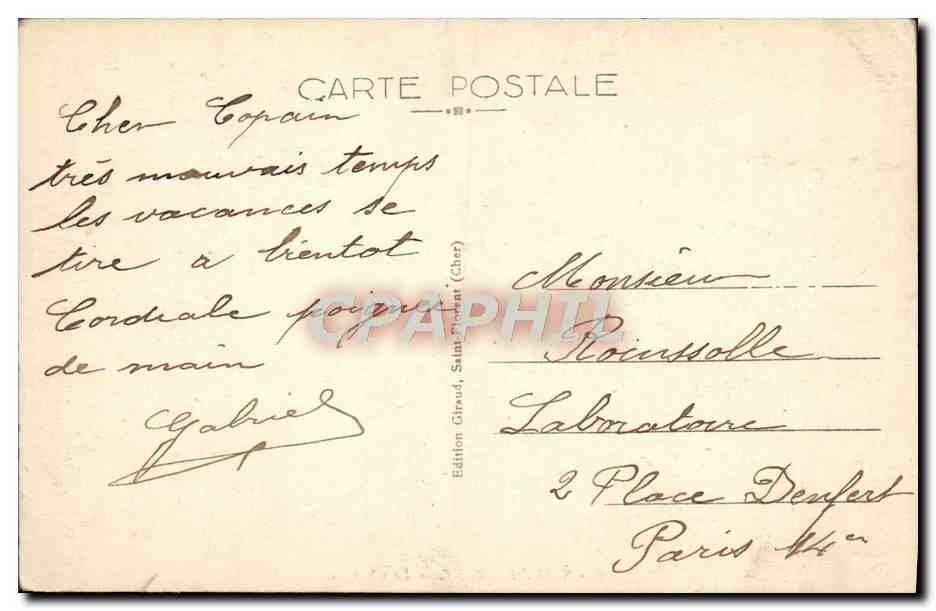 CARTE POSTALE
Cher Copain
très mauvais temps
les vacances se
tire a bientot
Cordiale poignée
de main
Gabriel
Edition Giraud, Saint-Florent (Cher)
CPAPHIL
Monsieur
Roinssolle
Laboratoire
2 Place Denfert
Paris 14em